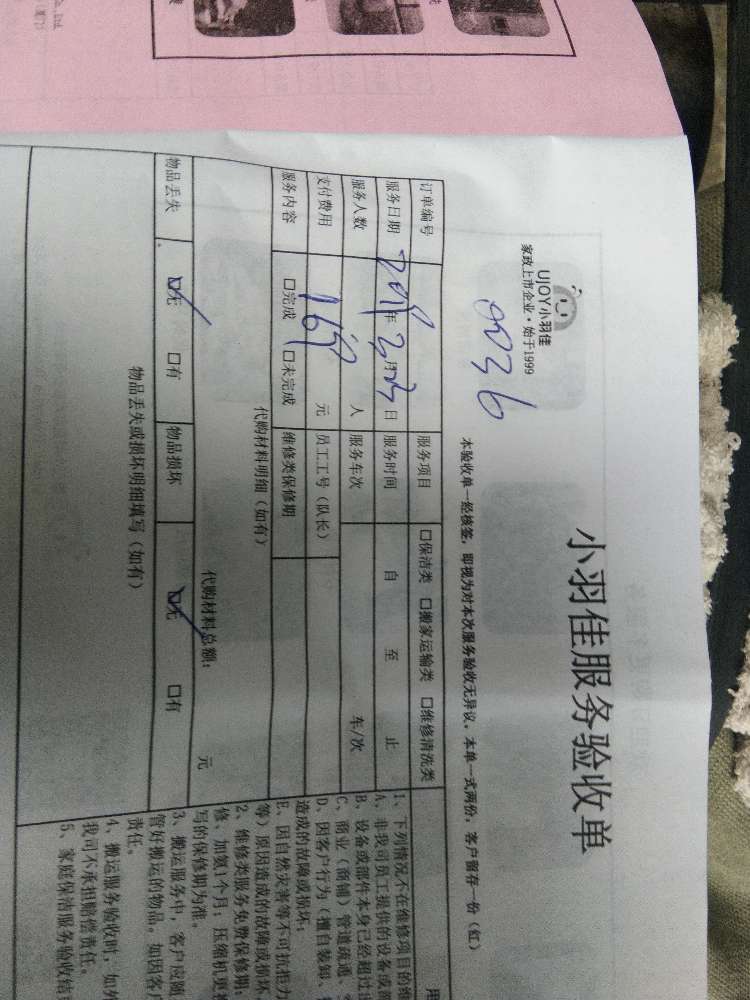 小羽佳服务验收单
UJOY小羽佳
家政上市企业·始于1999
0036
本验收单一经核签，即视为对本次服务验收无异议。本单一式两份，客户留存一份（红）
订单编号 服务项目 口保洁类 口搬家运输类 口维修清洗类
服务日期 年 月 日 服务时间 自 至 止
服务人数 人 服务车次 车/次
支付费用 元 员工工号（队长）
服务内容 口完成 口未完成 维修类保修期
代购材料明细（如有）
代购材料总额： 元
物品丢失 口无 口有 物品损坏 口无 口有
物品丢失或损坏明细填写（如有）
1、下列情况不在维修项目的
A、非我司员工提供的设备或
B、设备或部件本身已经超过
C、商业（商铺）管道疏通、
D、因客户行为（擅自装卸、
造成的故障或损坏；
E、因自然灾害等不可抗拒力
等）原因造成的故障或损坏
2、维修类服务免费保修期：
修、加氨1个月；压缩机更
写的保修期为准。
3、搬运服务中，客户应随
管好搬运的物品。如因客户
责任。
4、搬运服务验收时，如外
我司不承担赔偿责任。
5、家庭保洁服务验收结